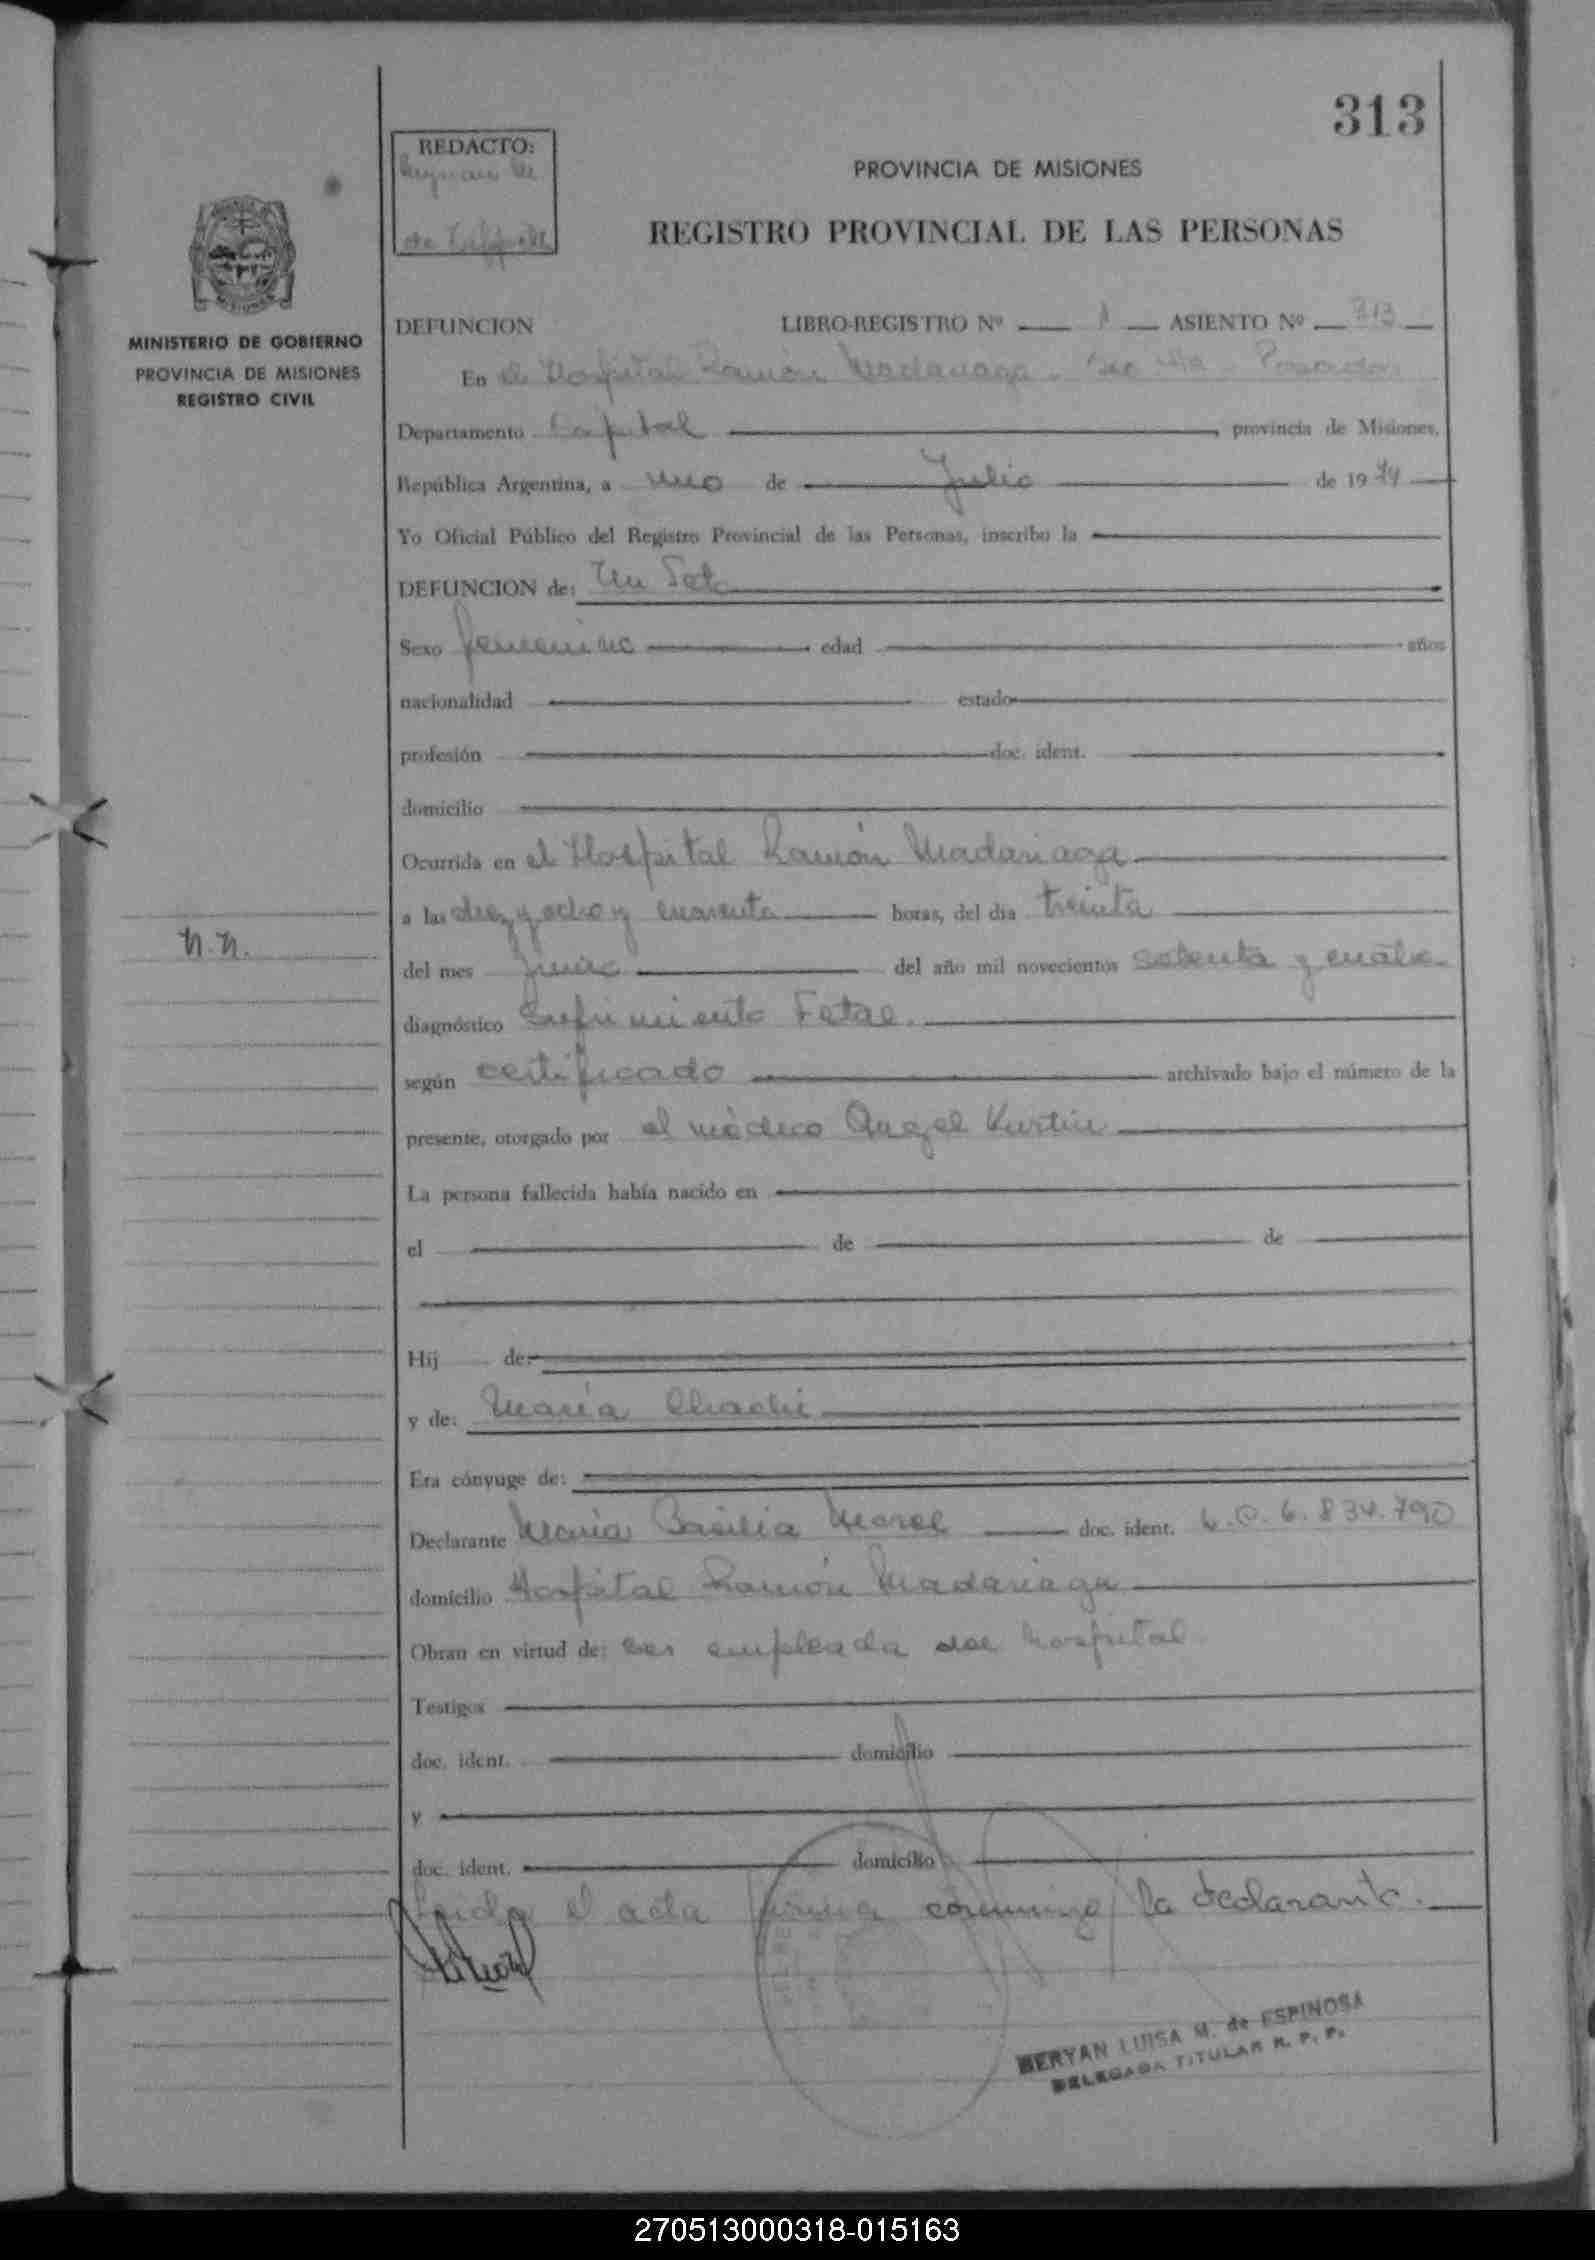 313
REDACTO:
de
PROVINCIA DE MISIONES
REGISTRO PROVINCIAL DE LAS PERSONAS
MINISTERIO DE GOBIERNO
PROVINCIA DE MISIONES
REGISTRO CIVIL
DEFUNCION LIBRO-REGISTRO Nº 1 ASIENTO Nº 313
En el Hospital Ramón Madariaga - Posadas
Departamento Capital , provincia de Misiones,
República Argentina, a uno de Julio de 1974
Yo Oficial Público del Registro Provincial de las Personas, inscribo la
DEFUNCION de: Un Feto
Sexo femenino edad años
nacionalidad estado
profesión doc. ident.
domicilio
Ocurrida en el Hospital Ramón Madariaga
a las diez y ocho y cuarenta horas, del dia treinta
n.n.
del mes junio del año mil novecientos setenta y cuatro
diagnóstico Sufrimiento Fetal.
según certificado archivado bajo el número de la
presente, otorgado por el médico Angel Kurtin
La persona fallecida había nacido en
el de de
Hij de:
y de: María
Era cónyuge de:
Declarante María Basilia Morel doc. ident. L.C. 6.834.790
domicilio Hospital Ramón Madariaga
Obran en virtud de: ser empleada del hospital.
Testigos
doc. ident. domicilio
y
doc. ident. domicilio
Leida el acta firma conmigo la declarante.
MERYAN LUISA M. de ESPINOSA
DELEGADA TITULAR R. P. P.
270513000318-015163